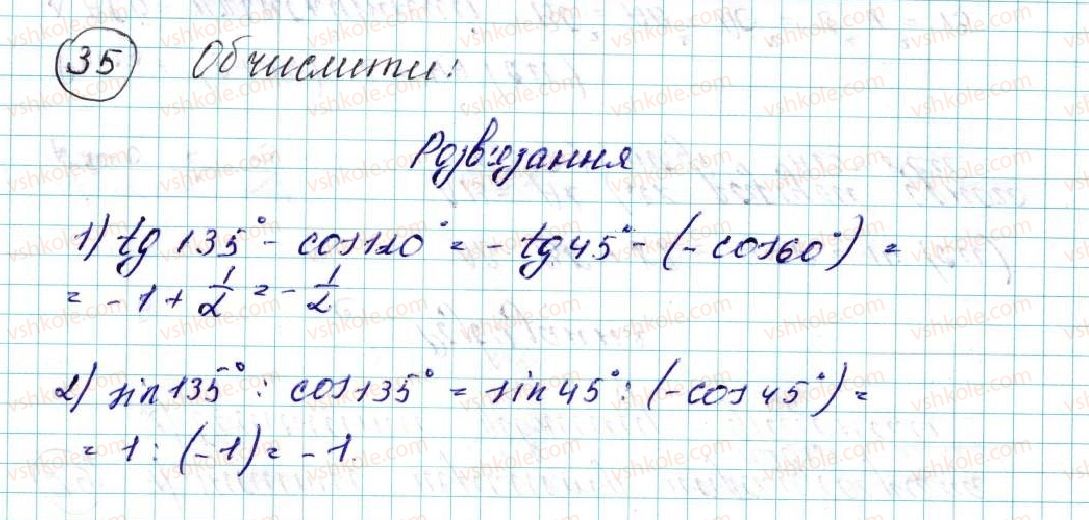 35 Обчислити:
Розв'язання
1) tg 135° - cos120° = - tg 45° - (- cos60°) =
= - 1 + 1/2 = - 1/2
2) sin135° : cos135° = sin 45° : (- cos 45°) =
= 1 : (-1) = - 1.